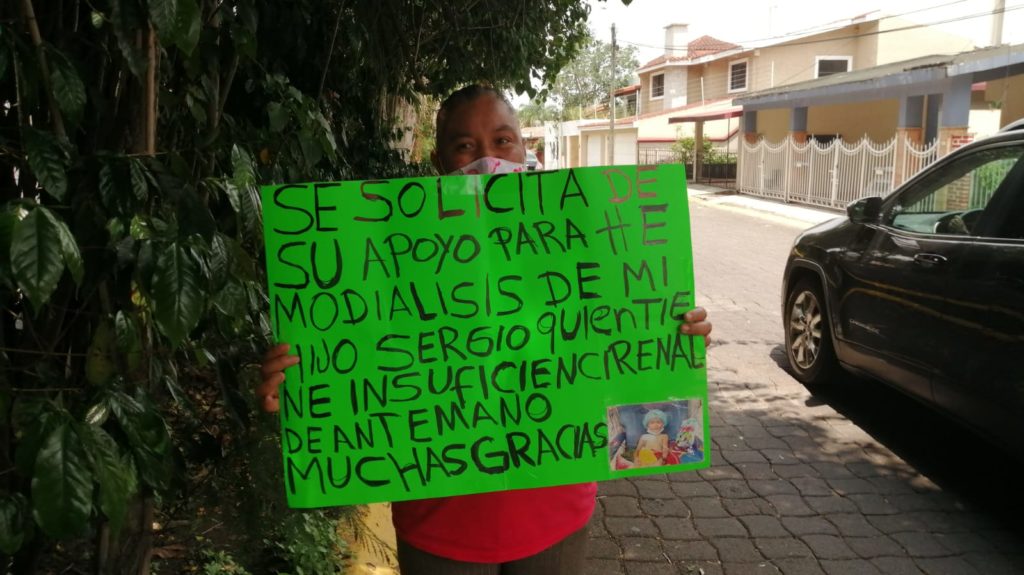 SE SOLICITA DE
SU APOYO PARA HE
MODIALISIS DE MI
HIJO SERGIO QUIENTIE
NE INSUFICIENCIRENAL
DE ANTEMANO
MUCHAS GRACIAS